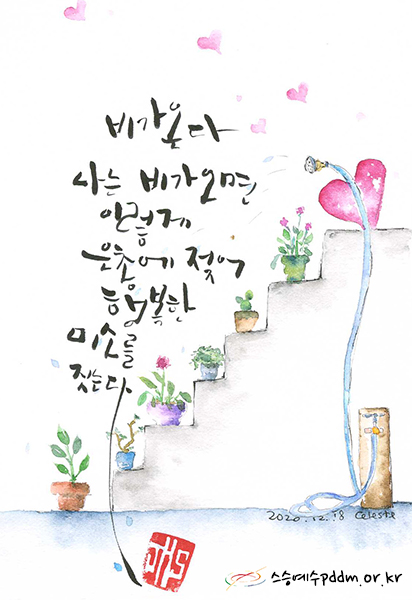 비가온다
나는 비가오면
이렇게
은총에 젖어
행복한
미소를
짓는다.
2020.12.18 Celeste
스승예수pddm.or.kr